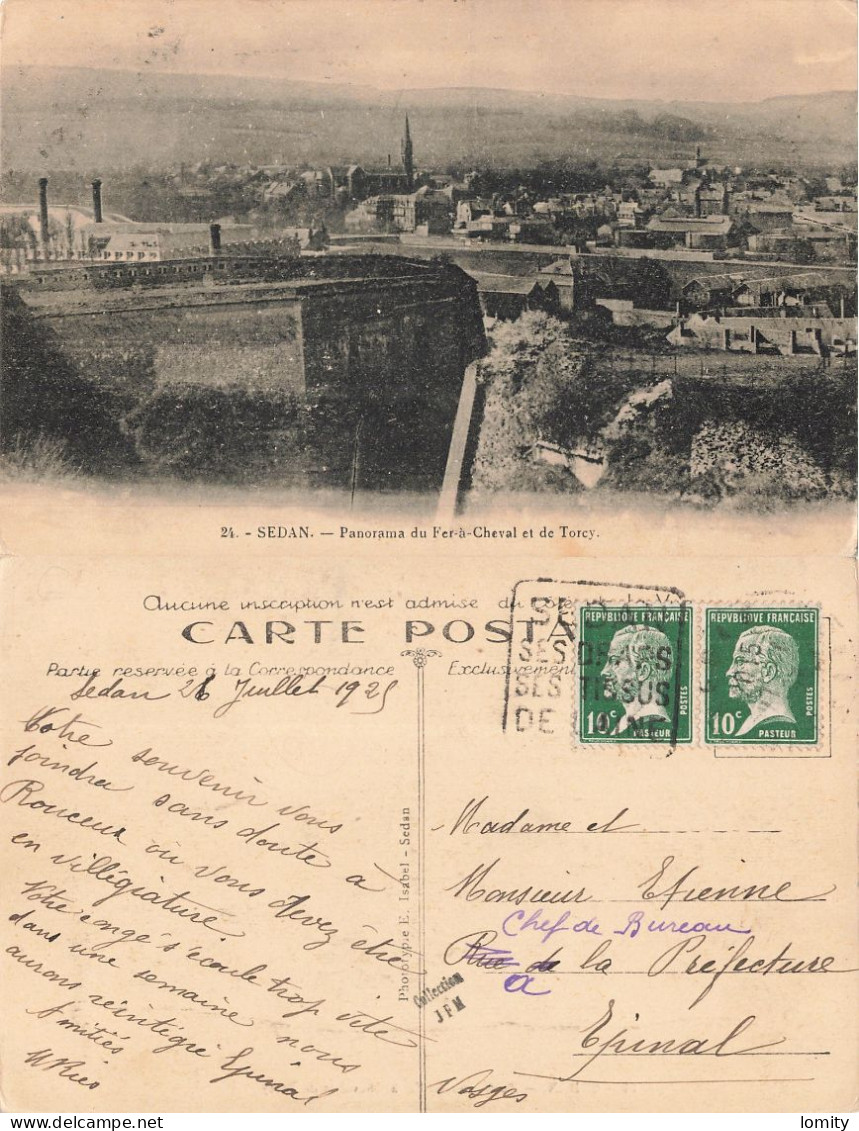 24. - SEDAN. — Panorama du Fer-à-Cheval et de Torcy.
Aucune inscription n'est admise du
CARTE POSTA
Partie reservée à la Correspondance
Exclusivement
SES DRAPS
SES TISSUS
DE LAINE
REPVBLIQUE FRANÇAISE
10c
PASTEUR
POSTES
REPVBLIQUE FRANÇAISE
10c
PASTEUR
POSTES
Sedan 28 Juillet 1925
Votre souvenir vous
joindra sans doute à
Rouceux où vous devez être
en villégiature
Votre congé s'écoule trop vite
dans une semaine nous
aurons réintégré Epinal
Amitiés
Phototypie E. Isabel - Sedan
Collection
JFM
Madame et
Monsieur Etienne
Chef de Bureau
Rue de la Préfecture
à
Epinal
Vosges
lomity